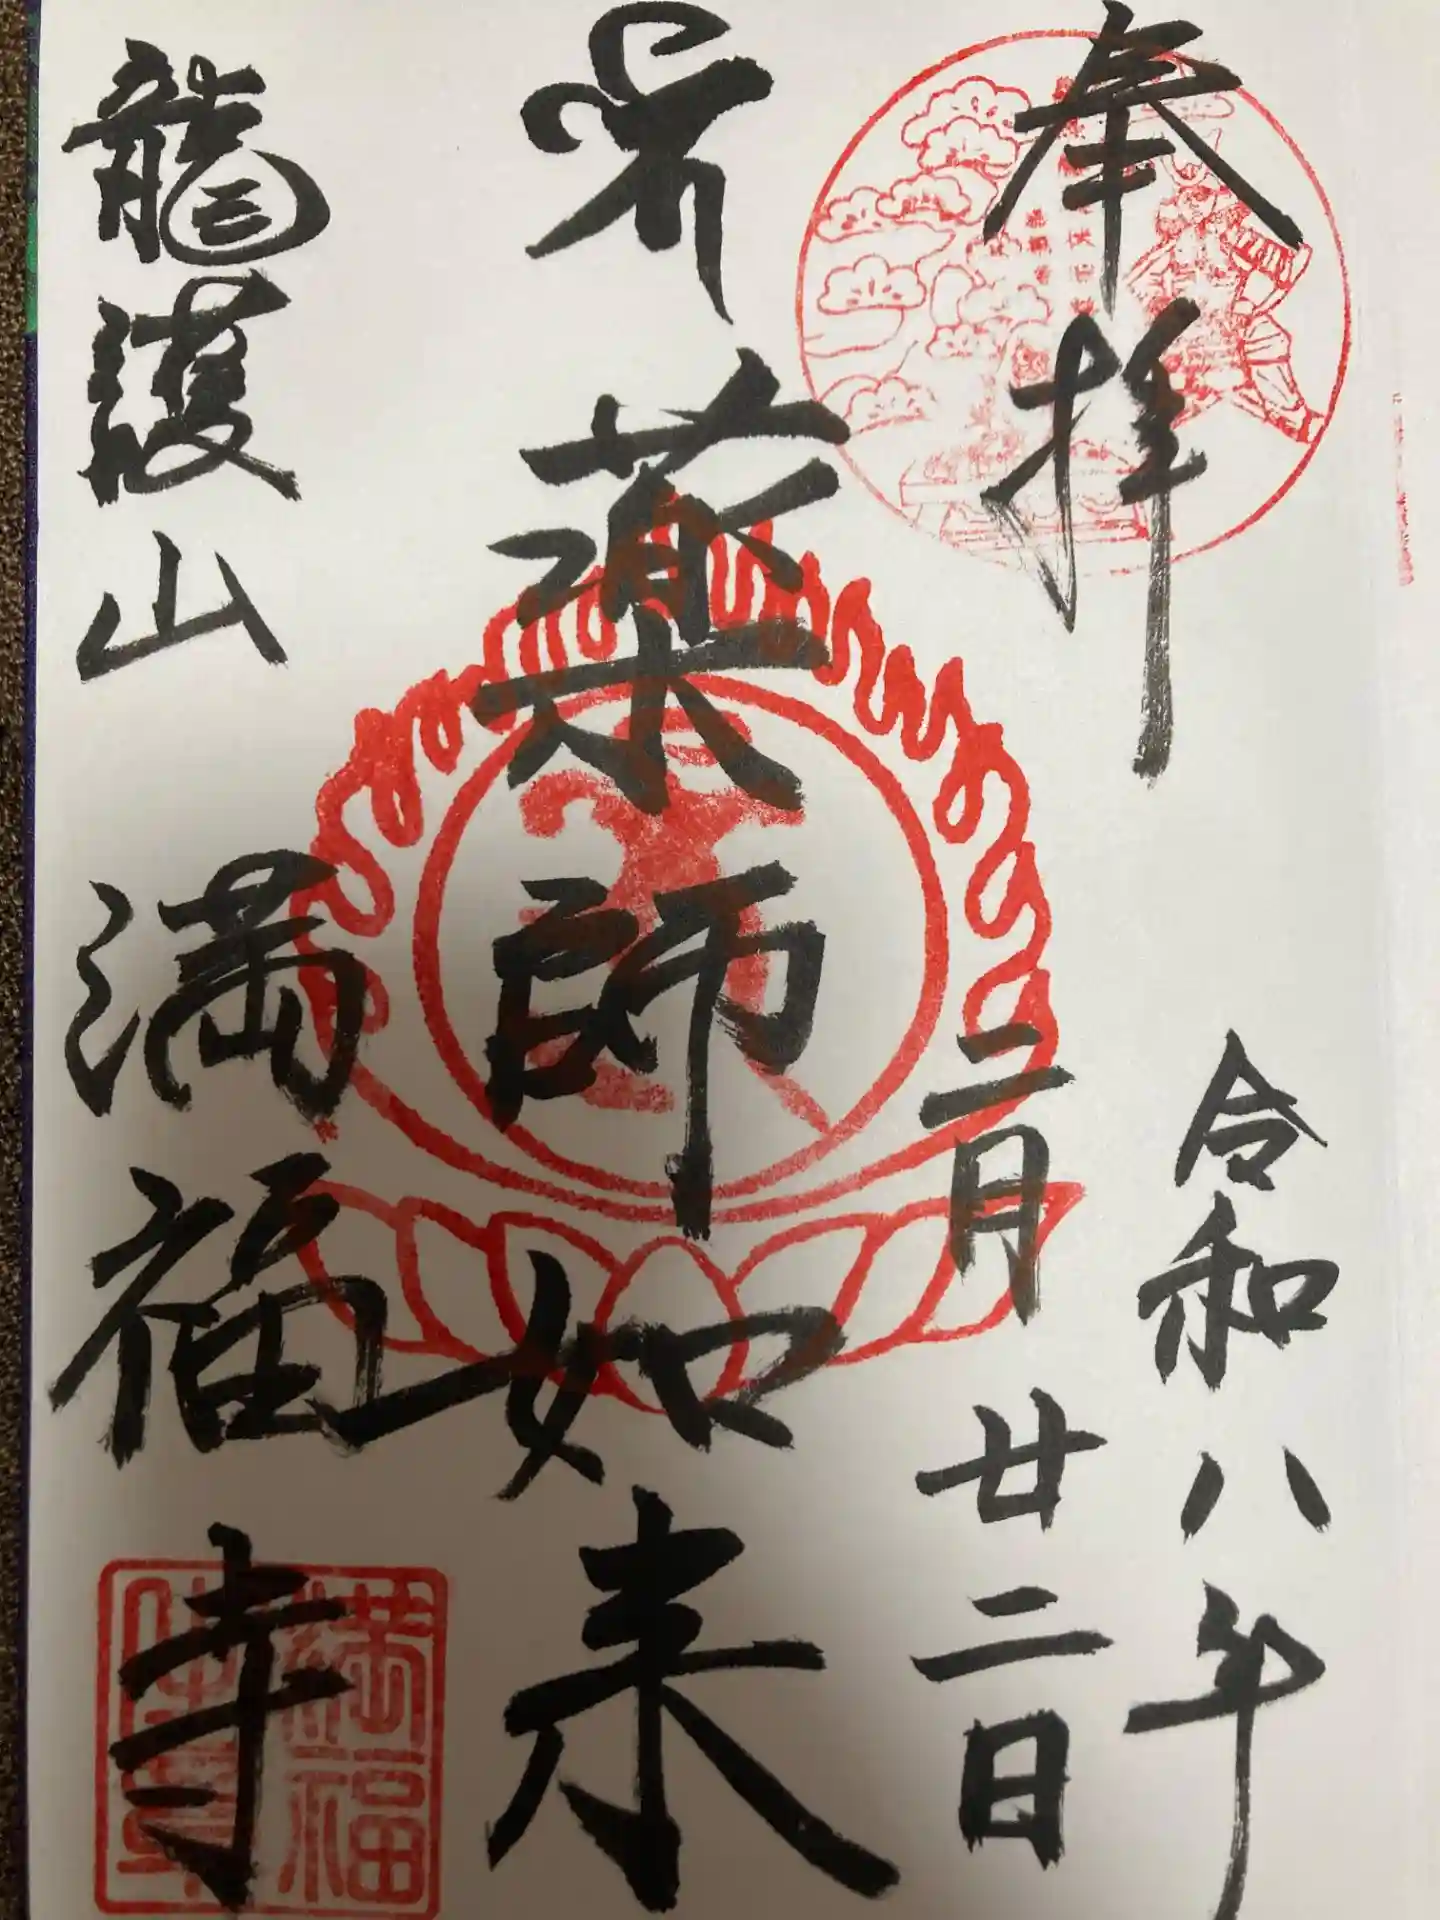 奉拝
令和八年
二月廿二日
薬師如来
龍護山
満福寺
満福